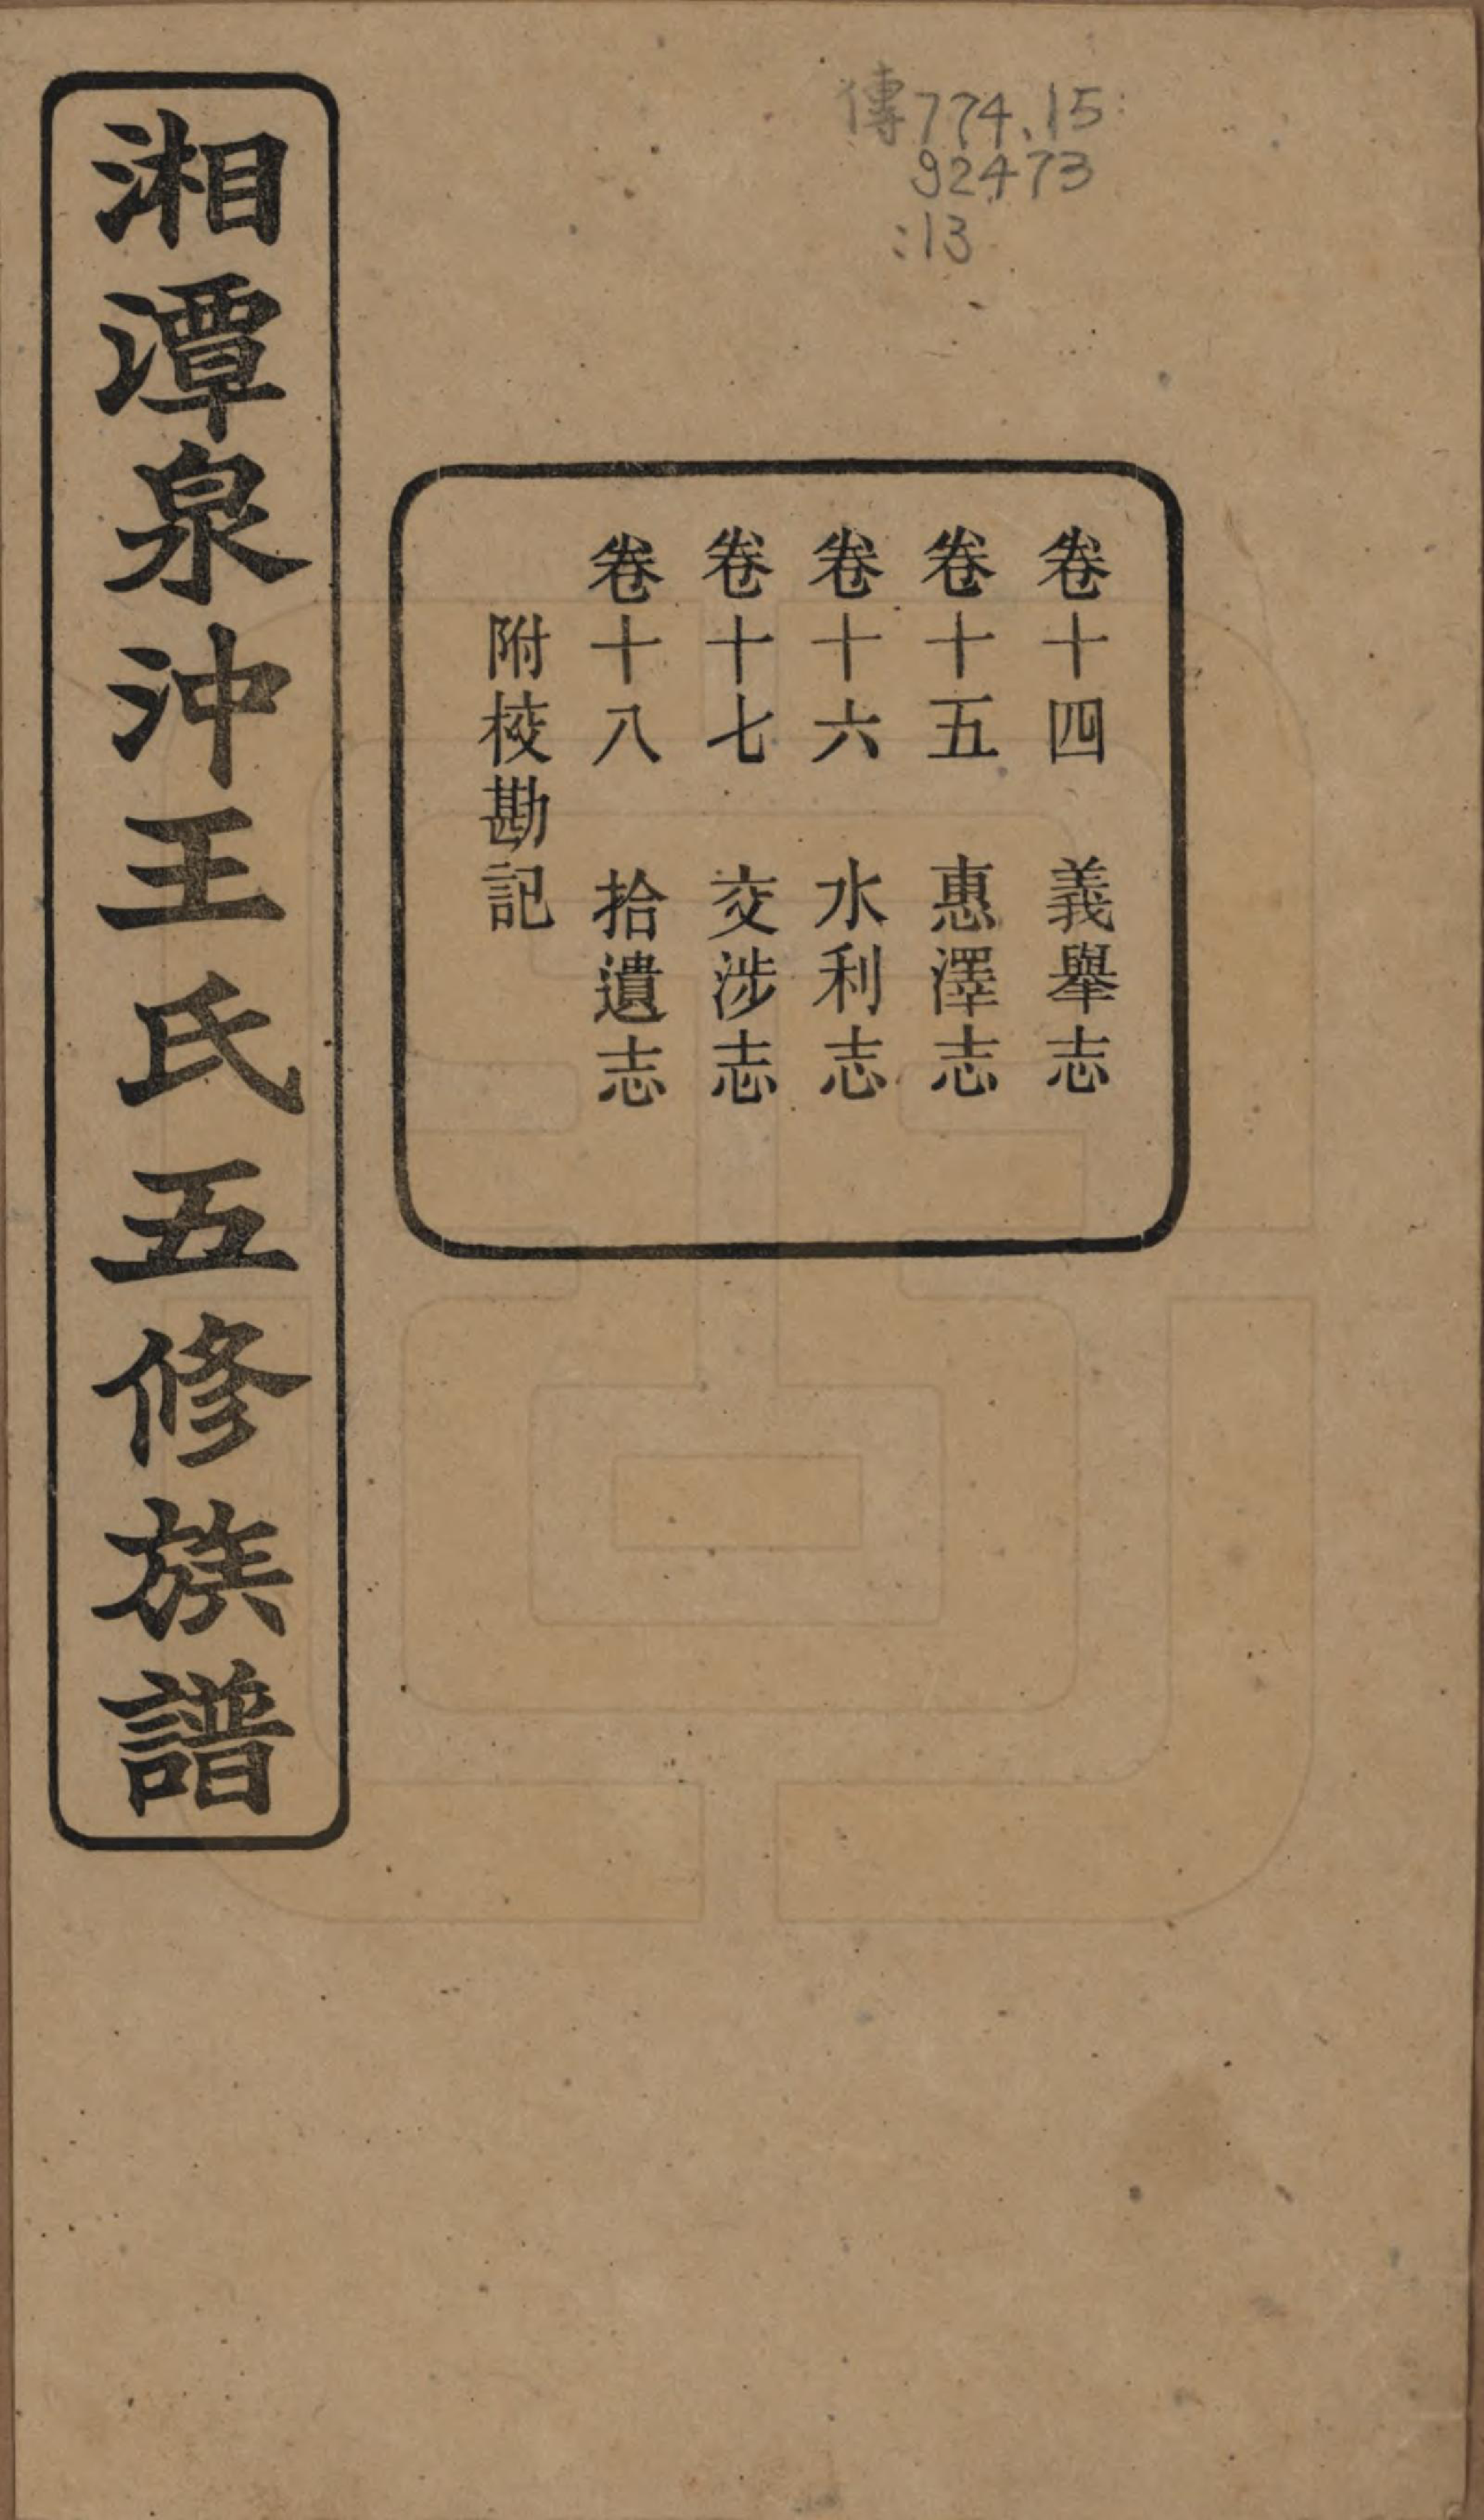 傳774.15
92473
:13
卷十四 義舉志
卷十五 惠澤志
卷十六 水利志
卷十七 交涉志
卷十八 拾遺志
附校勘記
湘潭泉沖王氏五修族譜